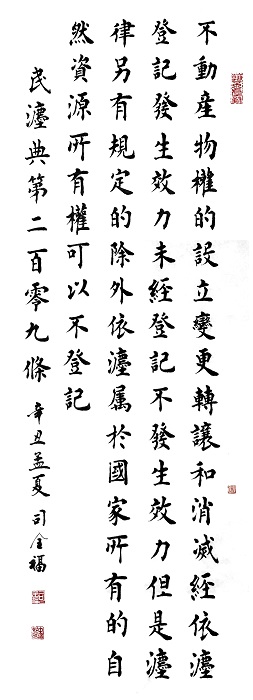 不動産物權的設立變更轉讓和消滅經依灋
登記發生效力未經登記不發生效力但是灋
律另有規定的除外依灋属於國家所有的自
然資源所有權可以不登記
民灋典第二百零九條
辛丑孟夏 司全福